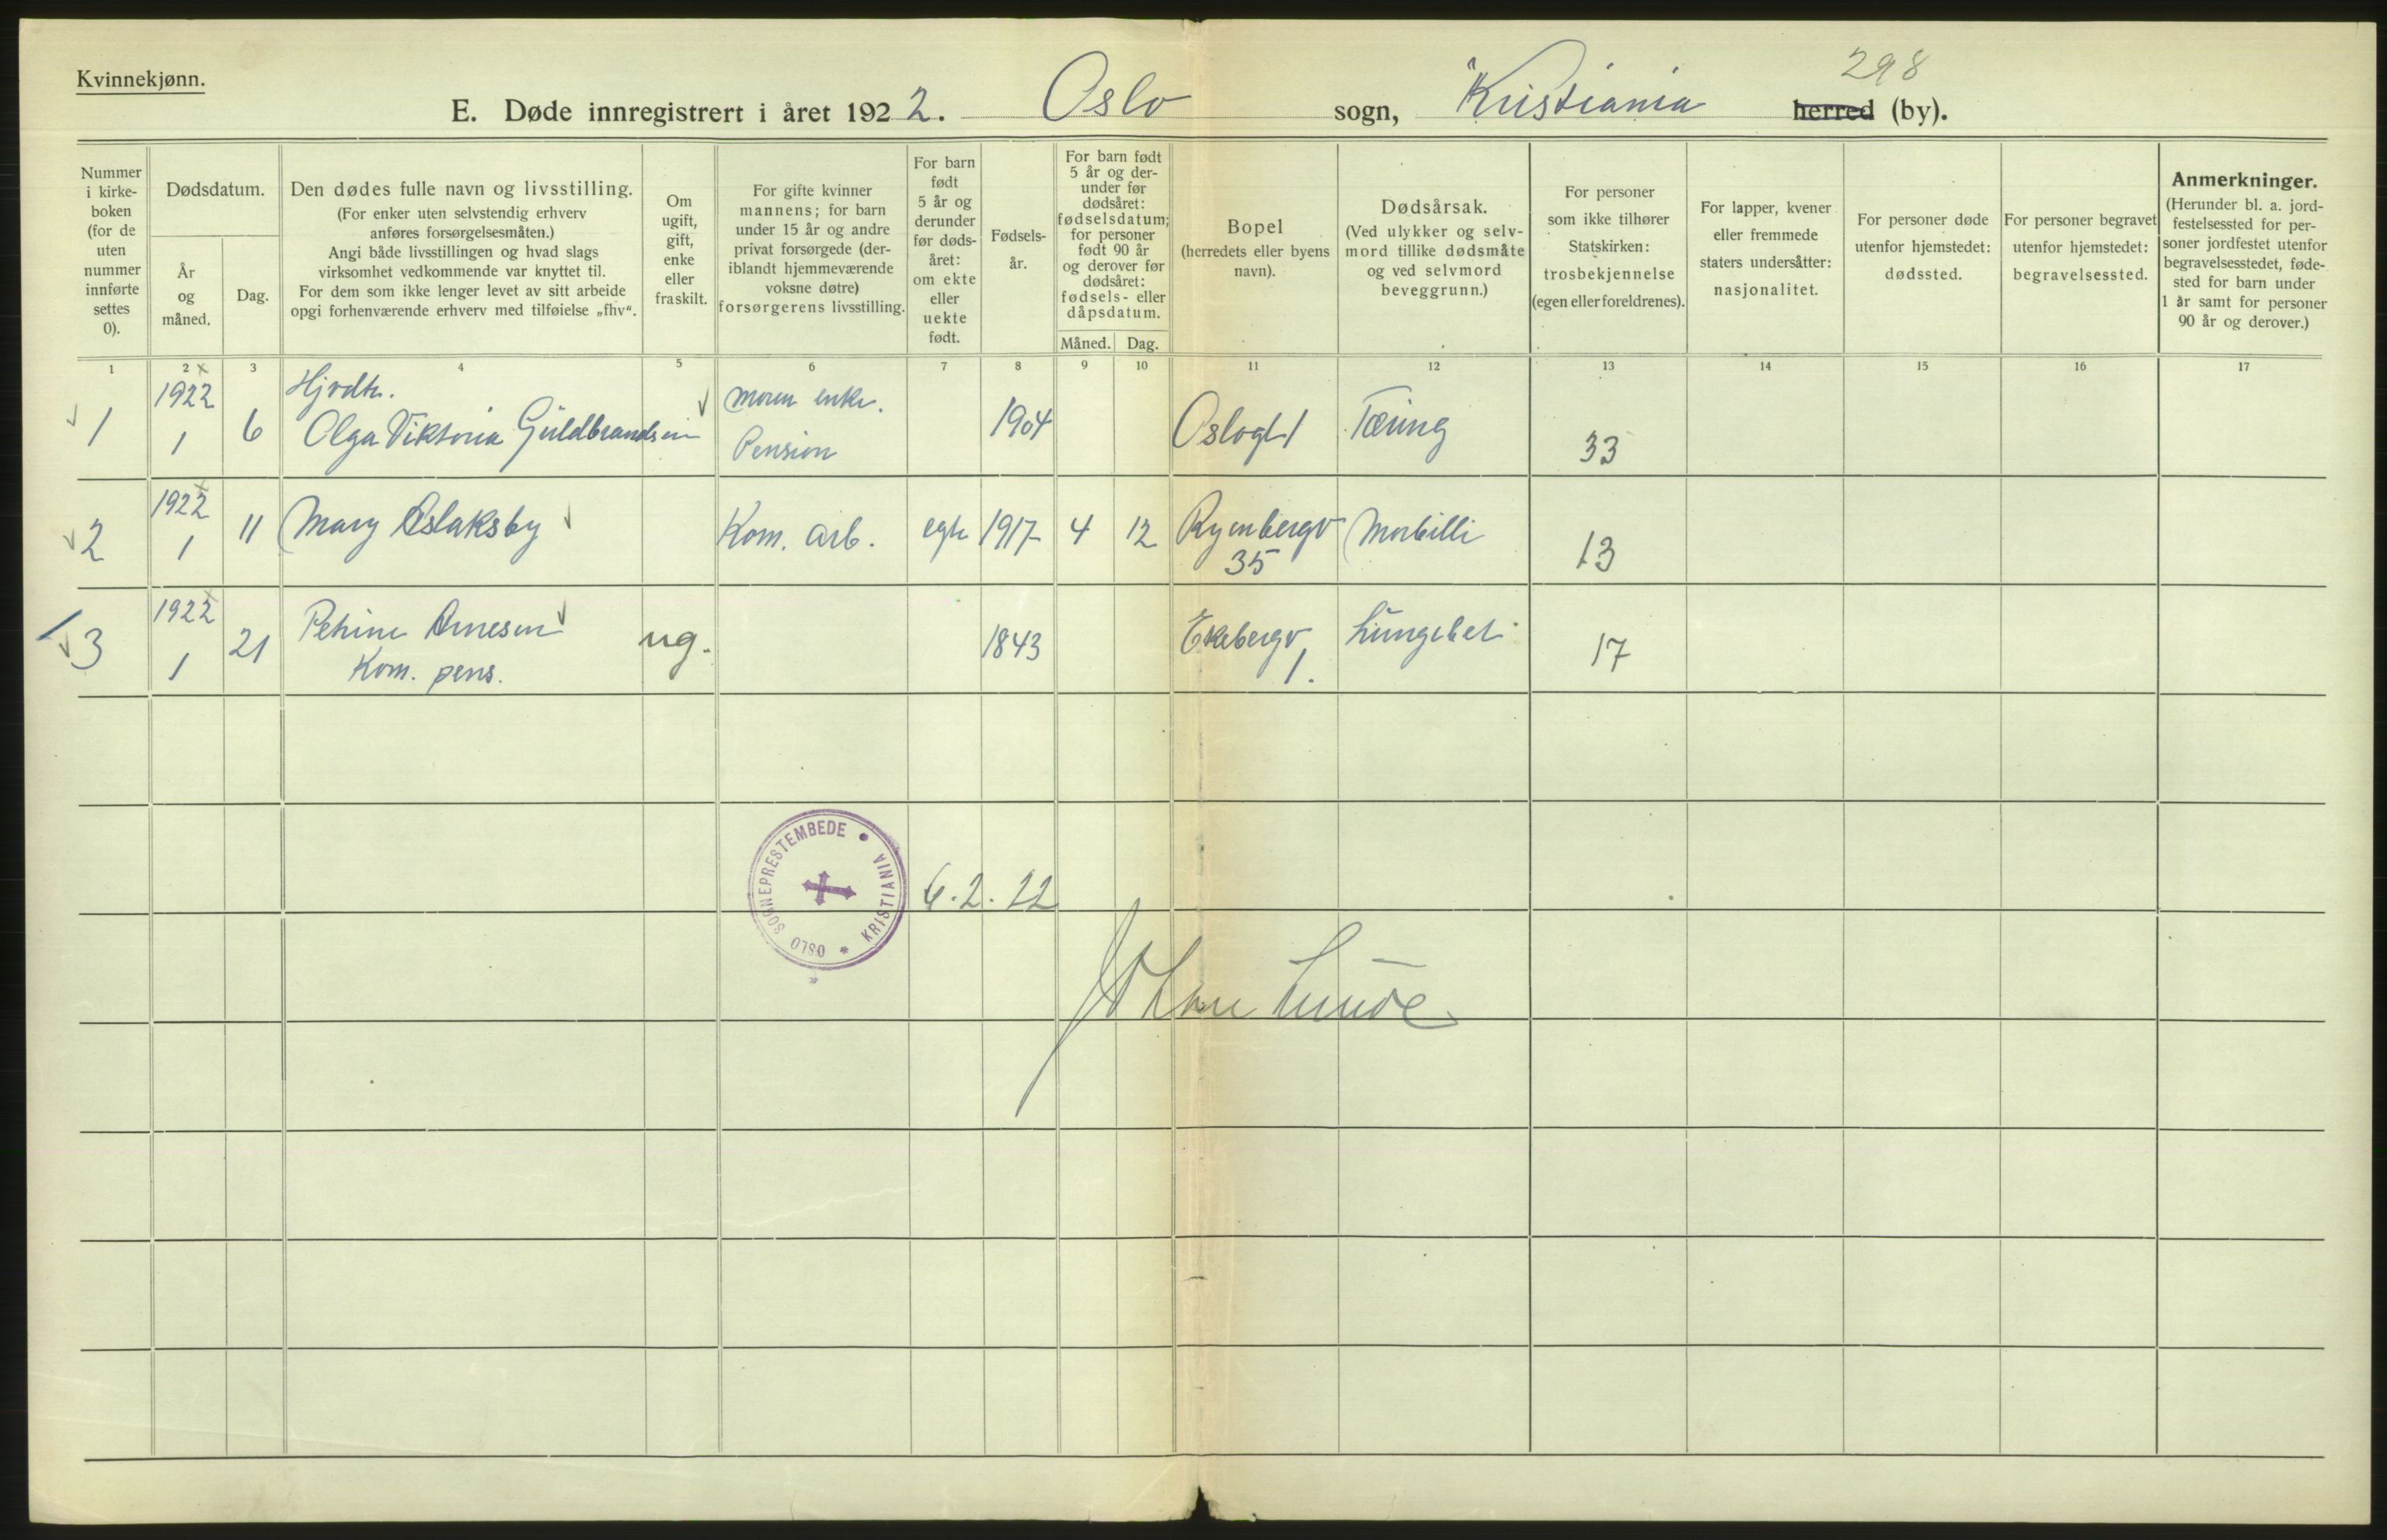 Kvinnekjønn.
298
E. Døde innregistrert i året 1922. Oslo sogn, Kristiania herred (by).
Nummer
i kirke-
boken
(for de
uten
nummer
innførte
settes
0).
Dødsdatum.
År
og
måned.
Dag.
Den dødes fulle navn og livsstilling.
(For enker uten selvstendig erhverv
anføres forsørgelsesmåten.)
Angi både livsstillingen og hvad slags
virksomhet vedkommende var knyttet til.
For dem som ikke lenger levet av sitt arbeide
opgi forhenværende erhverv med tilføielse „fhv“.
Om
ugift,
gift,
enke
eller
fraskilt.
For gifte kvinner
mannens; for barn
under 15 år og andre
privat forsørgede (der-
iblandt hjemmeværende
voksne døtre)
forsørgerens livsstilling.
For barn
født
5 år og
derunder
før døds-
året:
om ekte
eller
uekte
født.
Fødsels-
år.
For barn født
5 år og der-
under før
dødsåret:
fødselsdatum;
for personer
født 90 år
og derover før
dødsåret:
fødsels- eller
dåpsdatum.
Måned. Dag.
Bopel
(herredets eller byens
navn).
Dødsårsak.
(Ved ulykker og selv-
mord tillike dødsmåte
og ved selvmord
beveggrunn.)
For personer
som ikke tilhører
Statskirken:
trosbekjennelse
(egen eller foreldrenes).
For lapper, kvener
eller fremmede
staters undersåtter:
nasjonalitet.
For personer døde
utenfor hjemstedet:
dødssted.
For personer begravet
utenfor hjemstedet:
begravelsessted.
Anmerkninger.
(Herunder bl. a. jord-
festelsessted for per-
soner jordfestet utenfor
begravelsesstedet, føde-
sted for barn under
1 år samt for personer
90 år og derover.)
1 2 3 4 5 6 7 8 9 10 11 12 13 14 15 16 17
1
1922
1
6
Hjvdtr.
Olga Viktoria Guldbrandsen
Moren enke.
Pension
1904
Oslogt 1
Tæring
33
2
1922
1
11
Mary Aslaksby
Kom. arb.
egte
1917
4
12
Ryenbergv
35
Morbilli
13
3
1922
1
21
Petrine Arnesen
Kom. pens.
ug.
1843
Ekebergv
1.
Lungebet
17
OSLO SOGNEPRESTEMBEDE • KRISTIANIA *
6.2.22
Johan Lunde